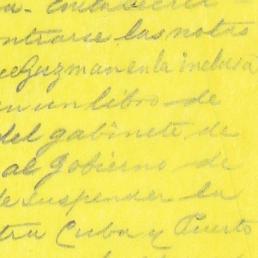 a- esta
ntrarse las notas
Guzman en la inclusa
en un libro de
del gabinete de
al Gobierno de
de suspender la
tra Cuba y Puerto